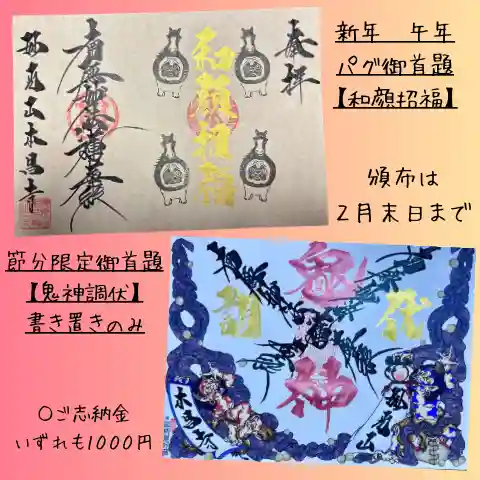 新年　午年
パグ御首題
【和顔招福】
頒布は
2月末日まで
奉拝
和顔招福
南無妙法蓮華経
節分限定御首題
【鬼神調伏】
書き置きのみ
○ご志納金
いずれも1000円
鬼神
調伏